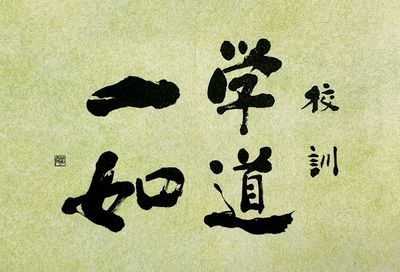 校訓
学道
一如